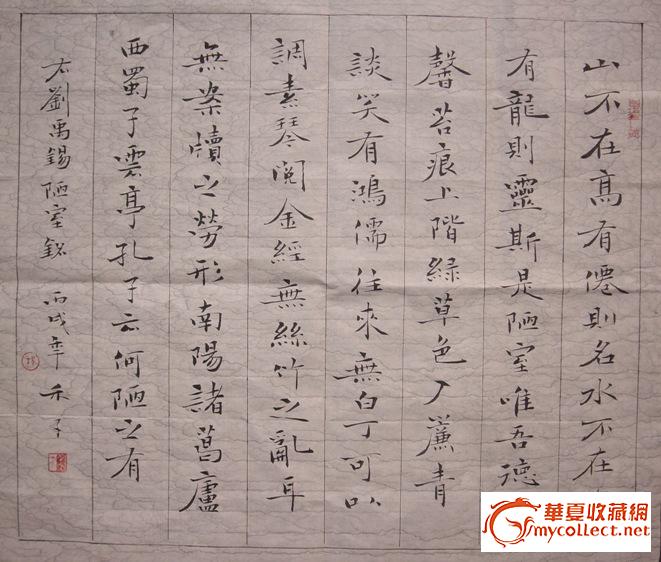 山不在高有僊則名水不在
有龍則靈斯是陋室唯吾德
馨苔痕上階綠草色入簾青
談笑有鴻儒往來無白丁可以
調素琴閱金經無絲竹之亂耳
無案牘之勞形南陽諸葛廬
西蜀子雲亭孔子云何陋之有
右劉禹錫陋室銘 丙戌年 禾子
華夏收藏網
mycollect.net